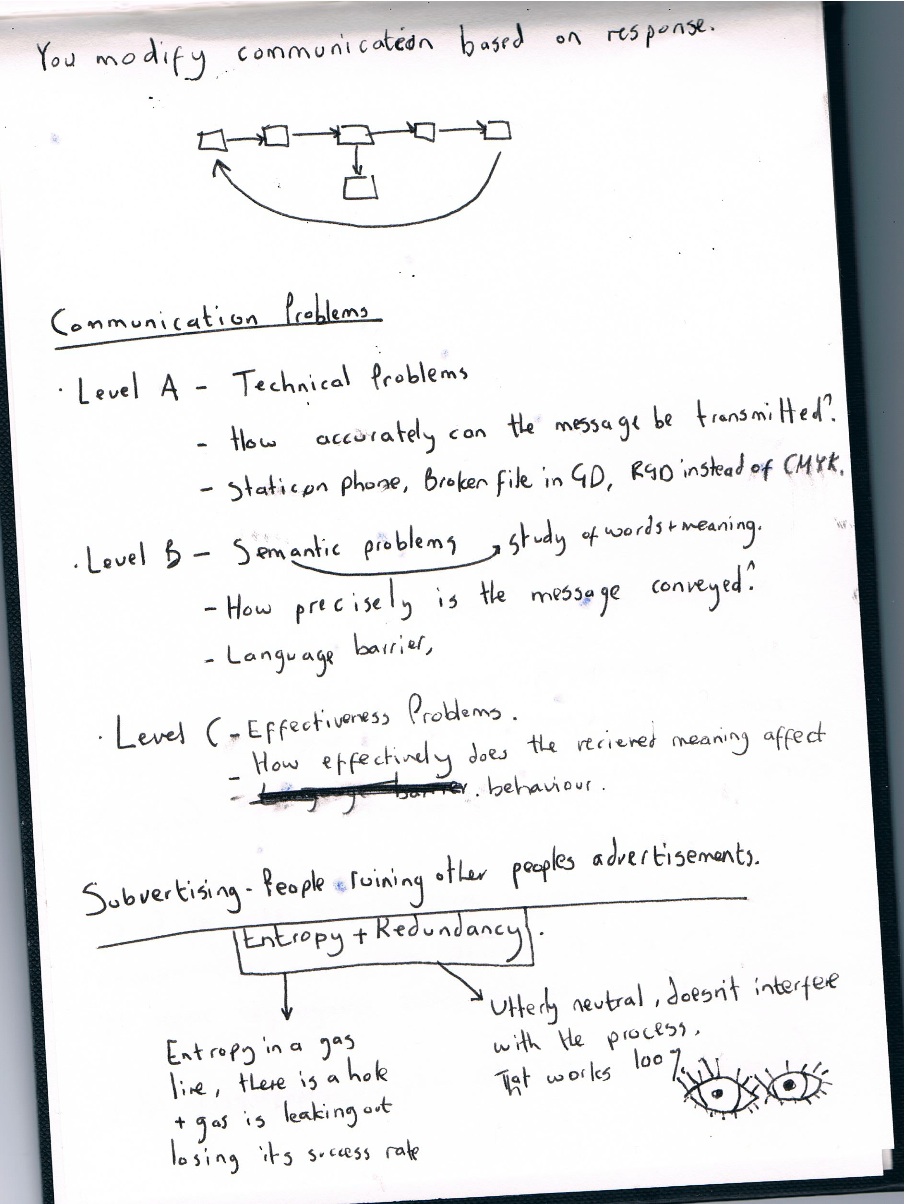 You modify communication based on response.
Communication Problems
· Level A - Technical Problems
- How accurately can the message be transmitted?
- Static on phone, Broken file in GD, RGD instead of CMYK.
· Level B - Semantic problems study of words + meaning.
- How precisely is the message conveyed?
- Language barrier,
· Level C - Effectiveness Problems.
- How effectively does the recieved meaning affect
- behaviour.
Subvertising - People ruining other peoples advertisements.
Entropy + Redundancy.
Entropy in a gas
line, there is a hole
+ gas is leaking out
losing its success rate
Utterly neutral, doesn't interfere
with the process.
That works 100%.